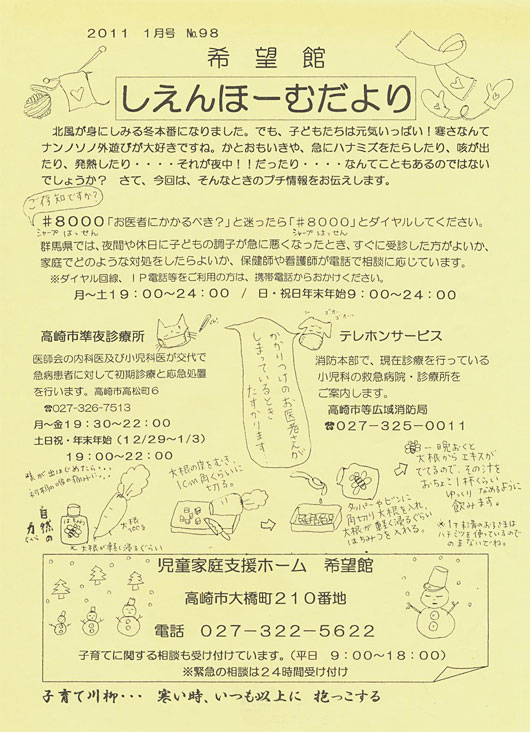 2011 1月号 No.98
希望館
しえんほーむだより
北風が身にしみる冬本番になりました。でも、子どもたちは元気いっぱい！寒さなんて
ナンノソノ外遊びが大好きですね。かとおもいきや、急にハナミズをたらしたり、咳が出
たり、発熱したり・・・・それが夜中！！だったり・・・・なんてこともあるのではない
でしょうか？ さて、今回は、そんなときのプチ情報をお伝えします。
ご存知ですか？
♯8000「お医者にかかるべき？」と迷ったら「♯8000」とダイヤルしてください。
シャープ はっせん シャープ はっせん
群馬県では、夜間や休日に子どもの調子が急に悪くなったとき、すぐに受診した方がよいか、
家庭でどのような対処をしたらよいか、保健師や看護師が電話で相談に応じています。
※ダイヤル回線、IP電話等をご利用の方は、携帯電話からおかけください。
月～土19：00～24：00 / 日・祝日年末年始9：00～24：00
高崎市準夜診療所
医師会の内科医及び小児科医が交代で
急病患者に対して初期診療と応急処置
を行います。高崎市高松町6
☎027-326-7513
月～金19：30～22：00
土日祝・年末年始（12/29～1/3）
19：00～22：00
かかりつけのお医者さんが
しまっているとき
たすかります
テレホンサービス
消防本部で、現在診療を行っている
小児科の救急病院・診療所を
ご案内します。
高崎市等広域消防局
☎027-325-0011
咳が出はじめたら・・・
初期の喉の痛みに・・・
自然の力
はちみつ
大根が軽く浸るぐらい
大根
100g
大根の皮をむき、
1cm角くらいに
切る。
タッパーやビンに
角切り大根を入れ
大根が軽く浸るぐらい
はちみつを入れる。
一晩おくと
大根からエキスが
でてるので、その汁を
おちょこ1杯くらい
ゆっくりなめるように
飲みます。
※1才未満のお子さまは
ハチミツを使っているので
のまないでね。
児童家庭支援ホーム 希望館
高崎市大橋町210番地
電話 027-322-5622
子育てに関する相談も受け付けています。（平日 9：00～18：00）
※緊急の相談は24時間受け付け
子育て川柳・・・ 寒い時、いつも以上に 抱っこする